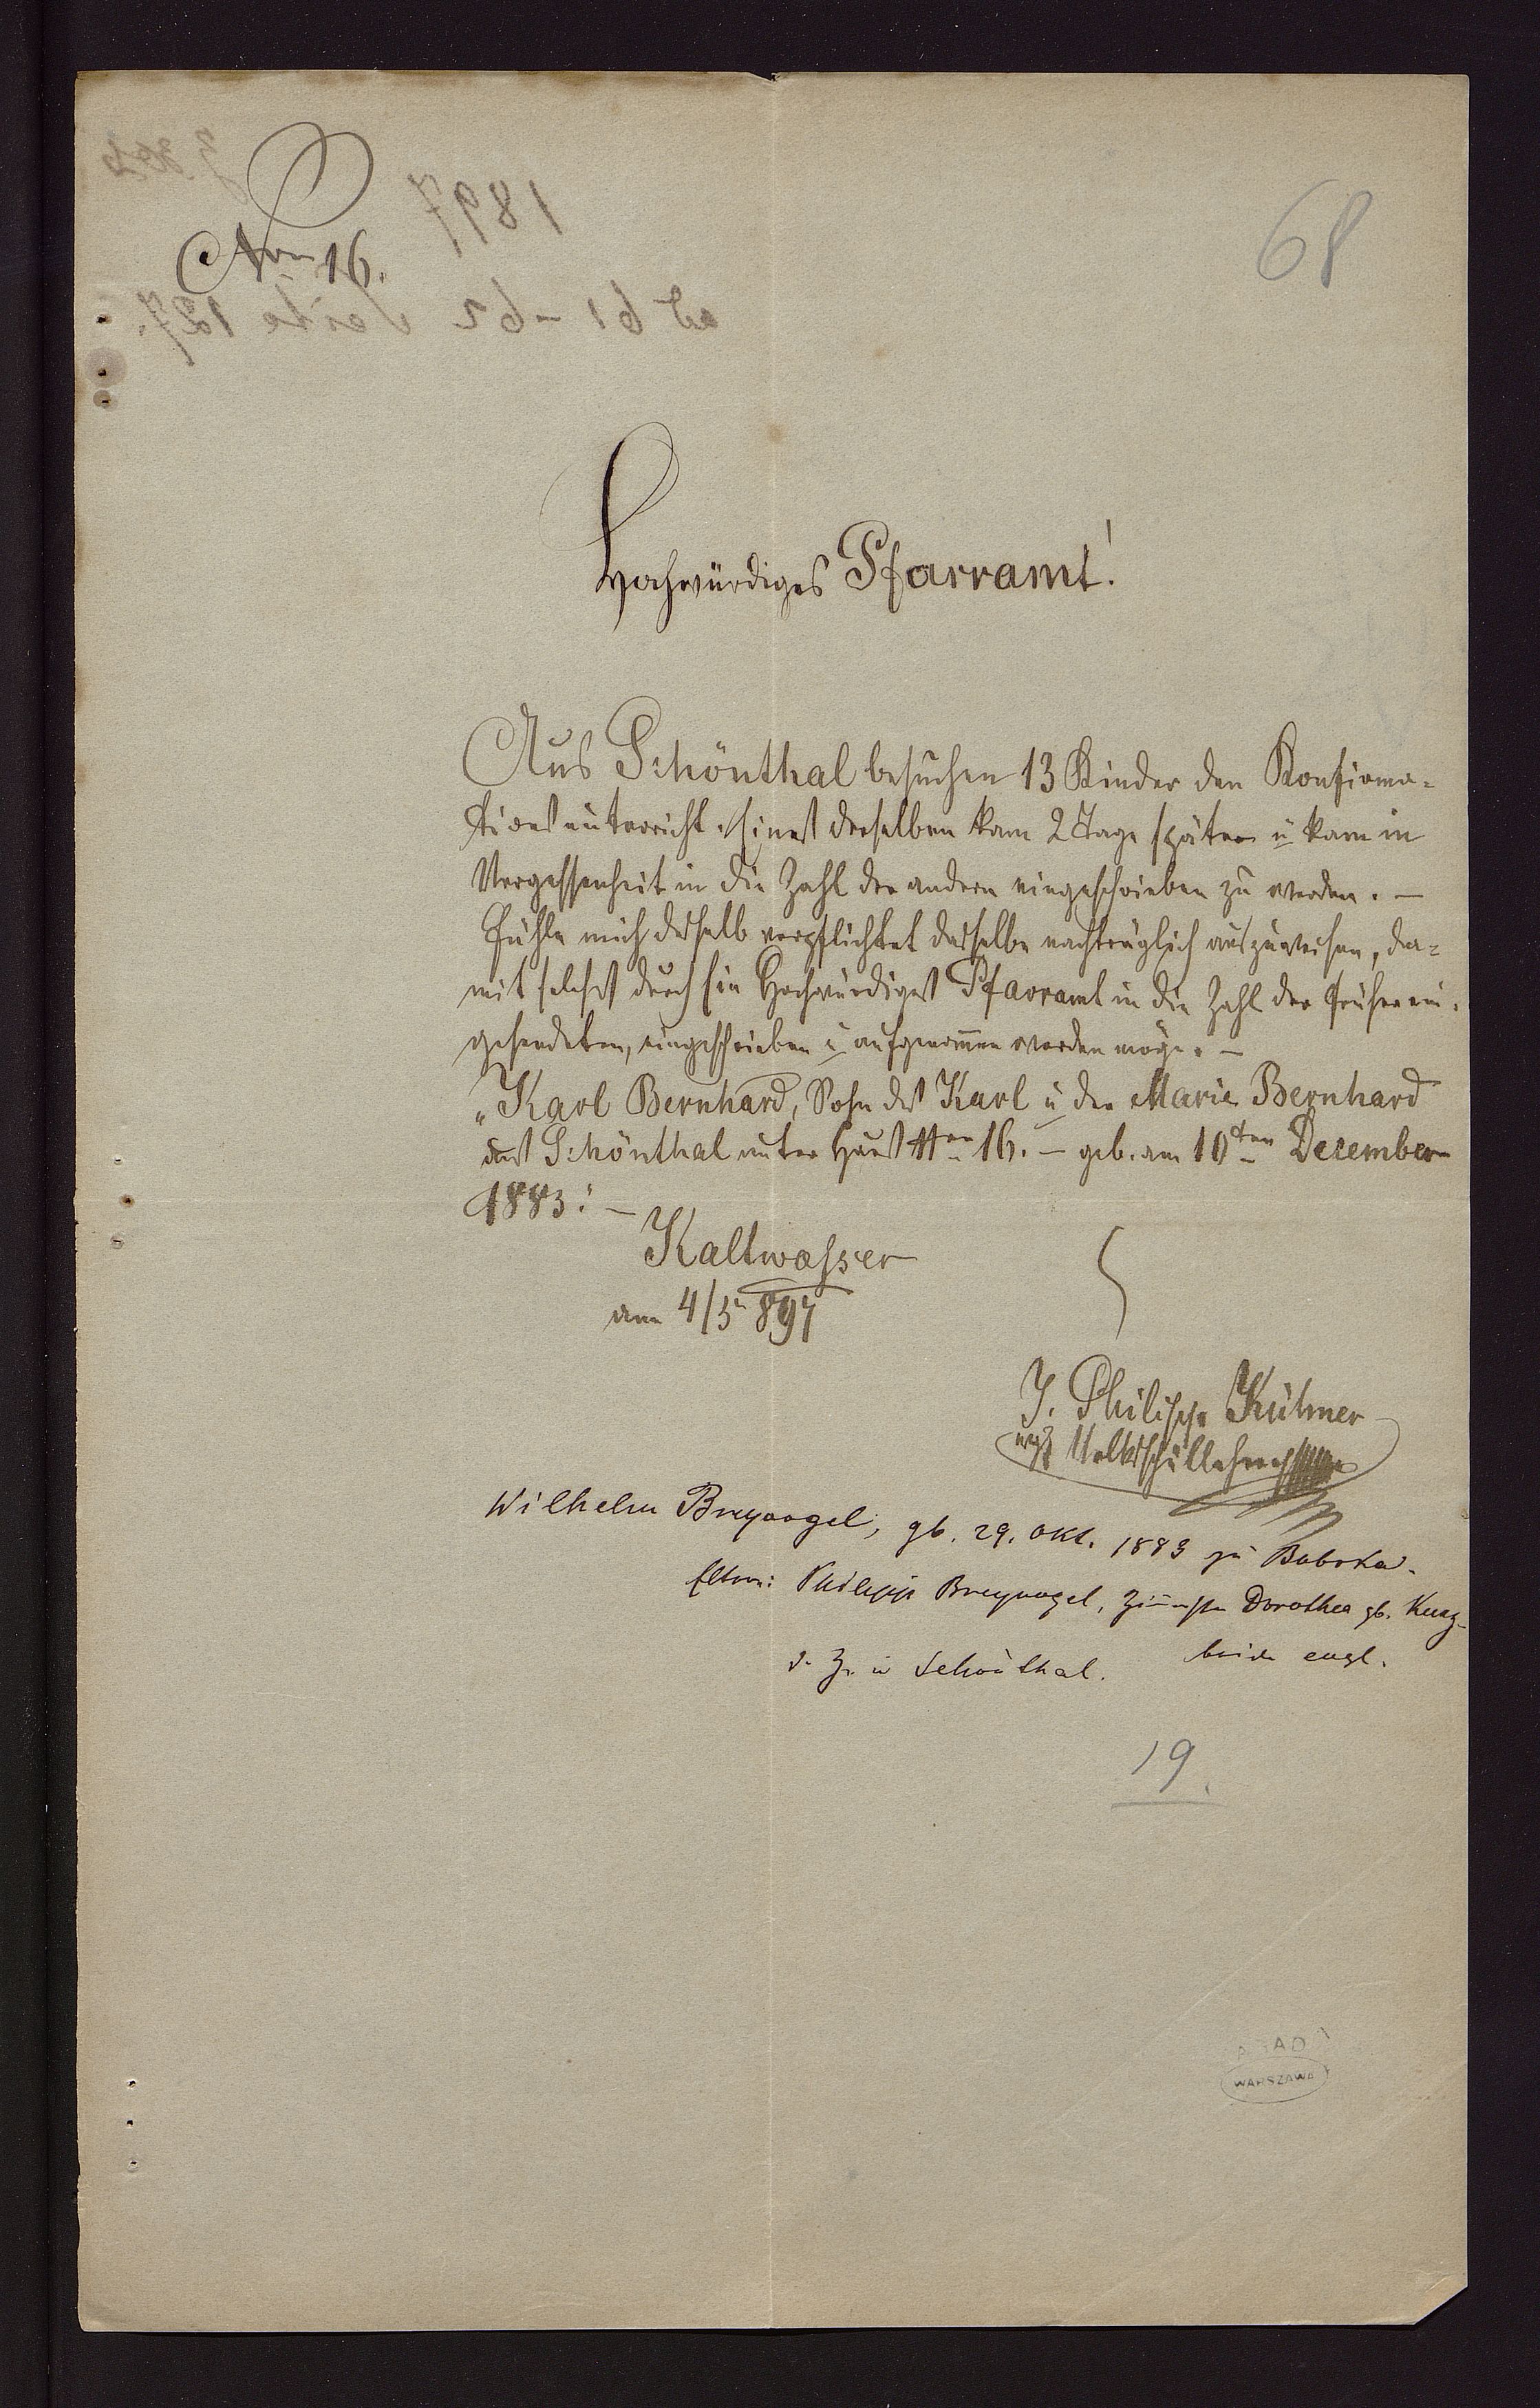 68
Nro 16.
Hochwürdiges Pfarramt!
Aus Schönthal besuchen 13 Kinder den Konfirma-
tionsunterricht. Eines derselben kam 2 Tage später u kam in
Vergessenheit in die Zahl der andern eingeschrieben zu werden. —
Fühle mich deshalb verpflichtet dasselbe nachträglich auszuweisen, da-
mit selches durch Ein Hochwürdiges Pfarramt in die Zahl der früher ein-
gesendeten, eingeschrieben u aufgenomen werden möge. —
„Karl Bernhard, Sohn des Karl u der Marie Bernhard
aus Schönthal unter Haus Nro 16. — geb. am 10ten December
1883: —
Kaltwasser
am 4/5 897
J. Philipp Kühner
Volksschullehrer
Wilhelm Breyvogel, gb. 29. Okt. 1883 zu Bobrka.
Eltern: Philipp Breyvogel, Dorothea gb. Kurz
d. Z. in Schönthal. beide evgl.
19.
WARSZAWA